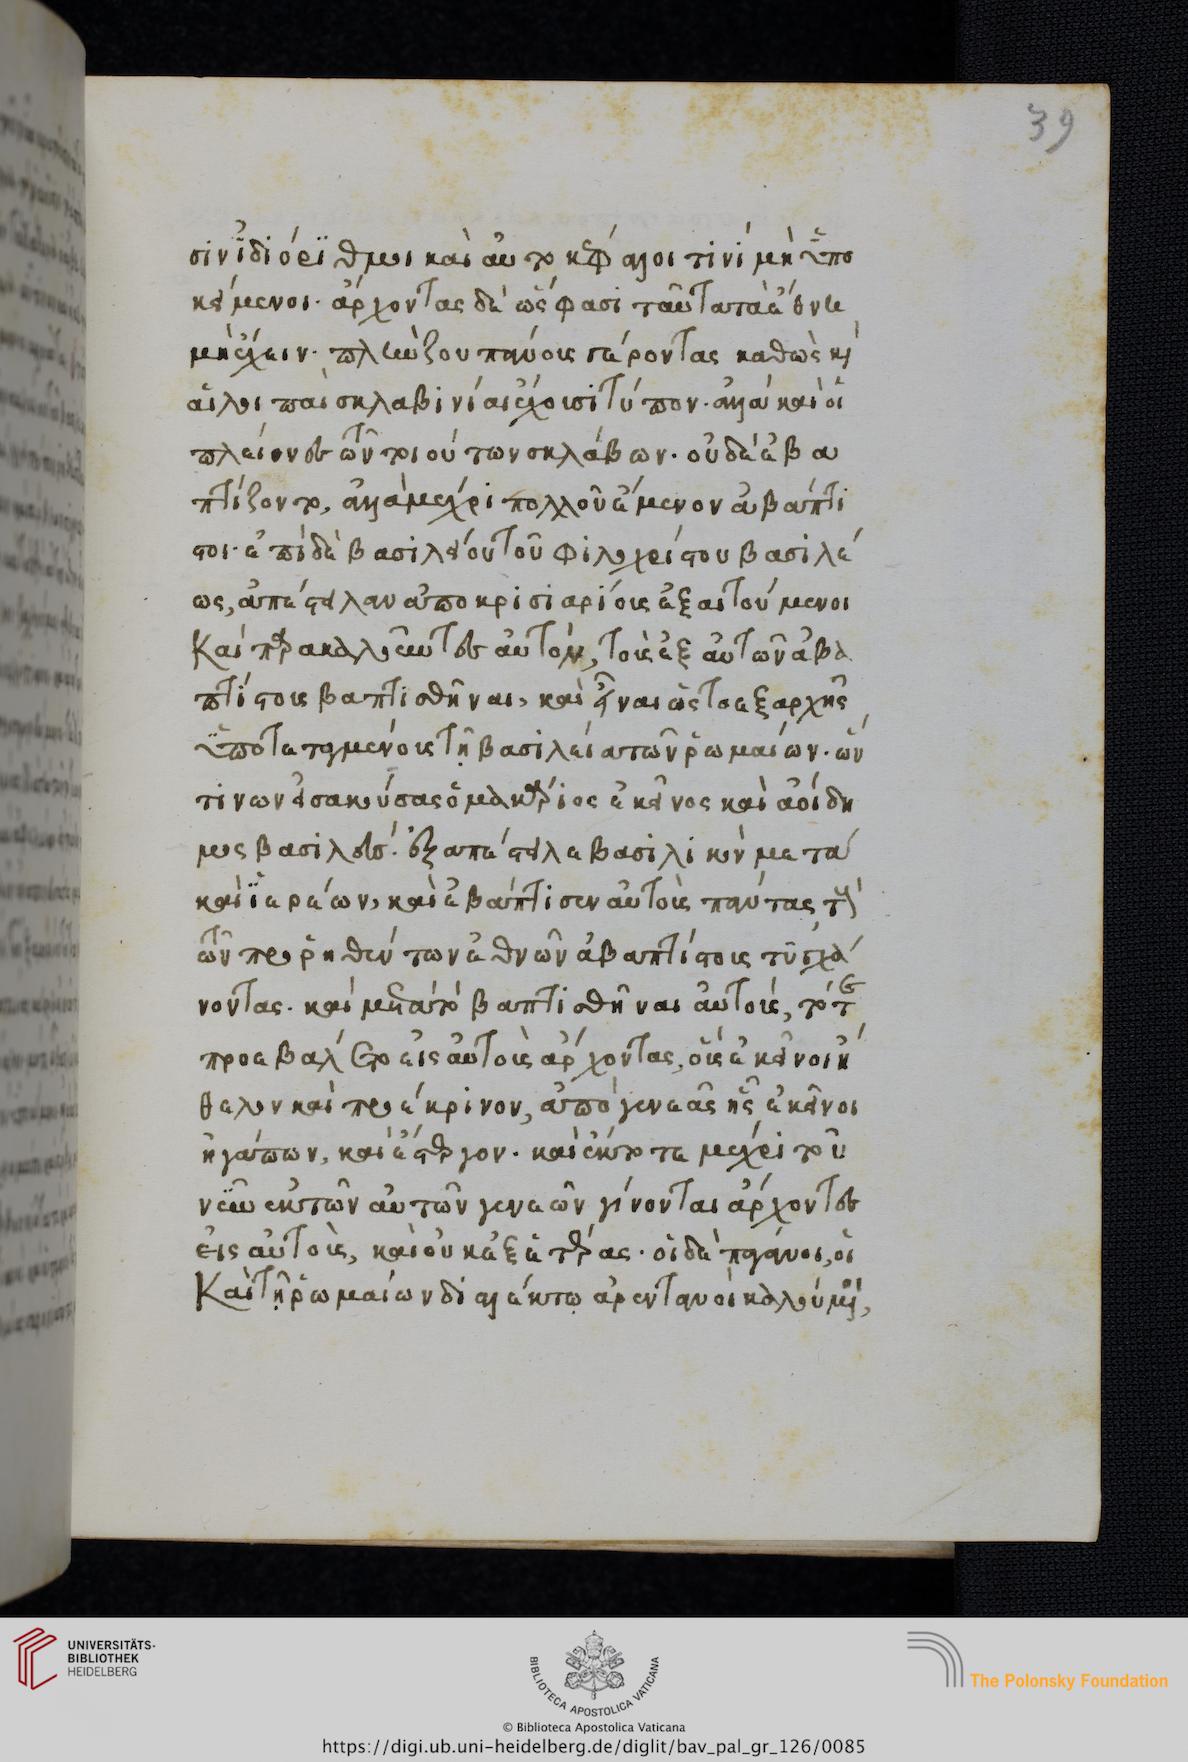 39
σιν ἰδιόρϊθμοι καὶ αὐτοκέφαλοι τινὶ μὴ ὑπο
κείμενοι· ἄρχοντας δὲ ὥς φασι ταῦτα τὰ ἔθνη
μὴ ἔχειν· πλὴν ζουπάνους γέροντας καθὼς καὶ
αἱ λοιπαὶ σκλαβινίαι ἔχουσι τύπον· ἀλλὰ καὶ οἱ
πλείονες τῶν τοιούτων σκλάβων· οὐδὲ ἐβα
πτίζοντο, ἀλλὰ μέχρι πολλοῦ ἔμενον ἀβάπτι
στοι· ἐπὶ δὲ βασιλείου τοῦ φιλοχρίστου βασιλέ
ως, ἀπέστειλαν ἀποκρισιαρίους ἐξαιτούμενοι
Καὶ παρακαλοῦντες αὐτὸν, τοὺς ἐξ αὐτῶν ἀβα
πτίστους βαπτισθῆναι, καὶ εἶναι ὡς τὸ ἐξαρχῆς
ὑποτεταγμένους τῇ βασιλείᾳ τῶν ῥωμαίων· ὧν
τινων εἰσακούσας ὁ μακάριος ἐκεῖνος καὶ ἀοίδη
μος βασιλεύς· ἐξαπέστειλε βασιλικὸν μετὰ
καὶ ἱερέων, καὶ ἐβάπτισεν αὐτοὺς πάντας τοὺς
τῶν προρηθέντων ἐθνῶν ἀβαπτίστους τυγχά
νοντας· καὶ μετὰ τὸ βαπτισθῆναι αὐτοὺς, τότε
προεβάλετο εἰς αὐτοὺς ἄρχοντας, οὓς ἐκεῖνοι ἤ
θελον καὶ προέκρινον, ἀπὸ γενεᾶς ἧς ἐκεῖνοι
ἠγάπων, καὶ ἔστεργον· καὶ ἔκτοτε μέχρι τοῦ
νῦν ἐκ τῶν αὐτῶν γενεῶν γίνονται ἄρχοντες
εἰς αὐτοὺς, καὶ οὐκ ἐξ ἑτέρας· οἱ δὲ παγάνοι, οἱ
Καὶ τῇ ῥωμαίων διαλέκτῳ ἀρεντανοὶ καλούμενοι,
UNIVERSITÄTS-
BIBLIOTHEK
HEIDELBERG
BIBLIOTECA APOSTOLICA VATICANA
The Polonsky Foundation
© Biblioteca Apostolica Vaticana
https://digi.ub.uni-heidelberg.de/diglit/bav_pal_gr_126/0085